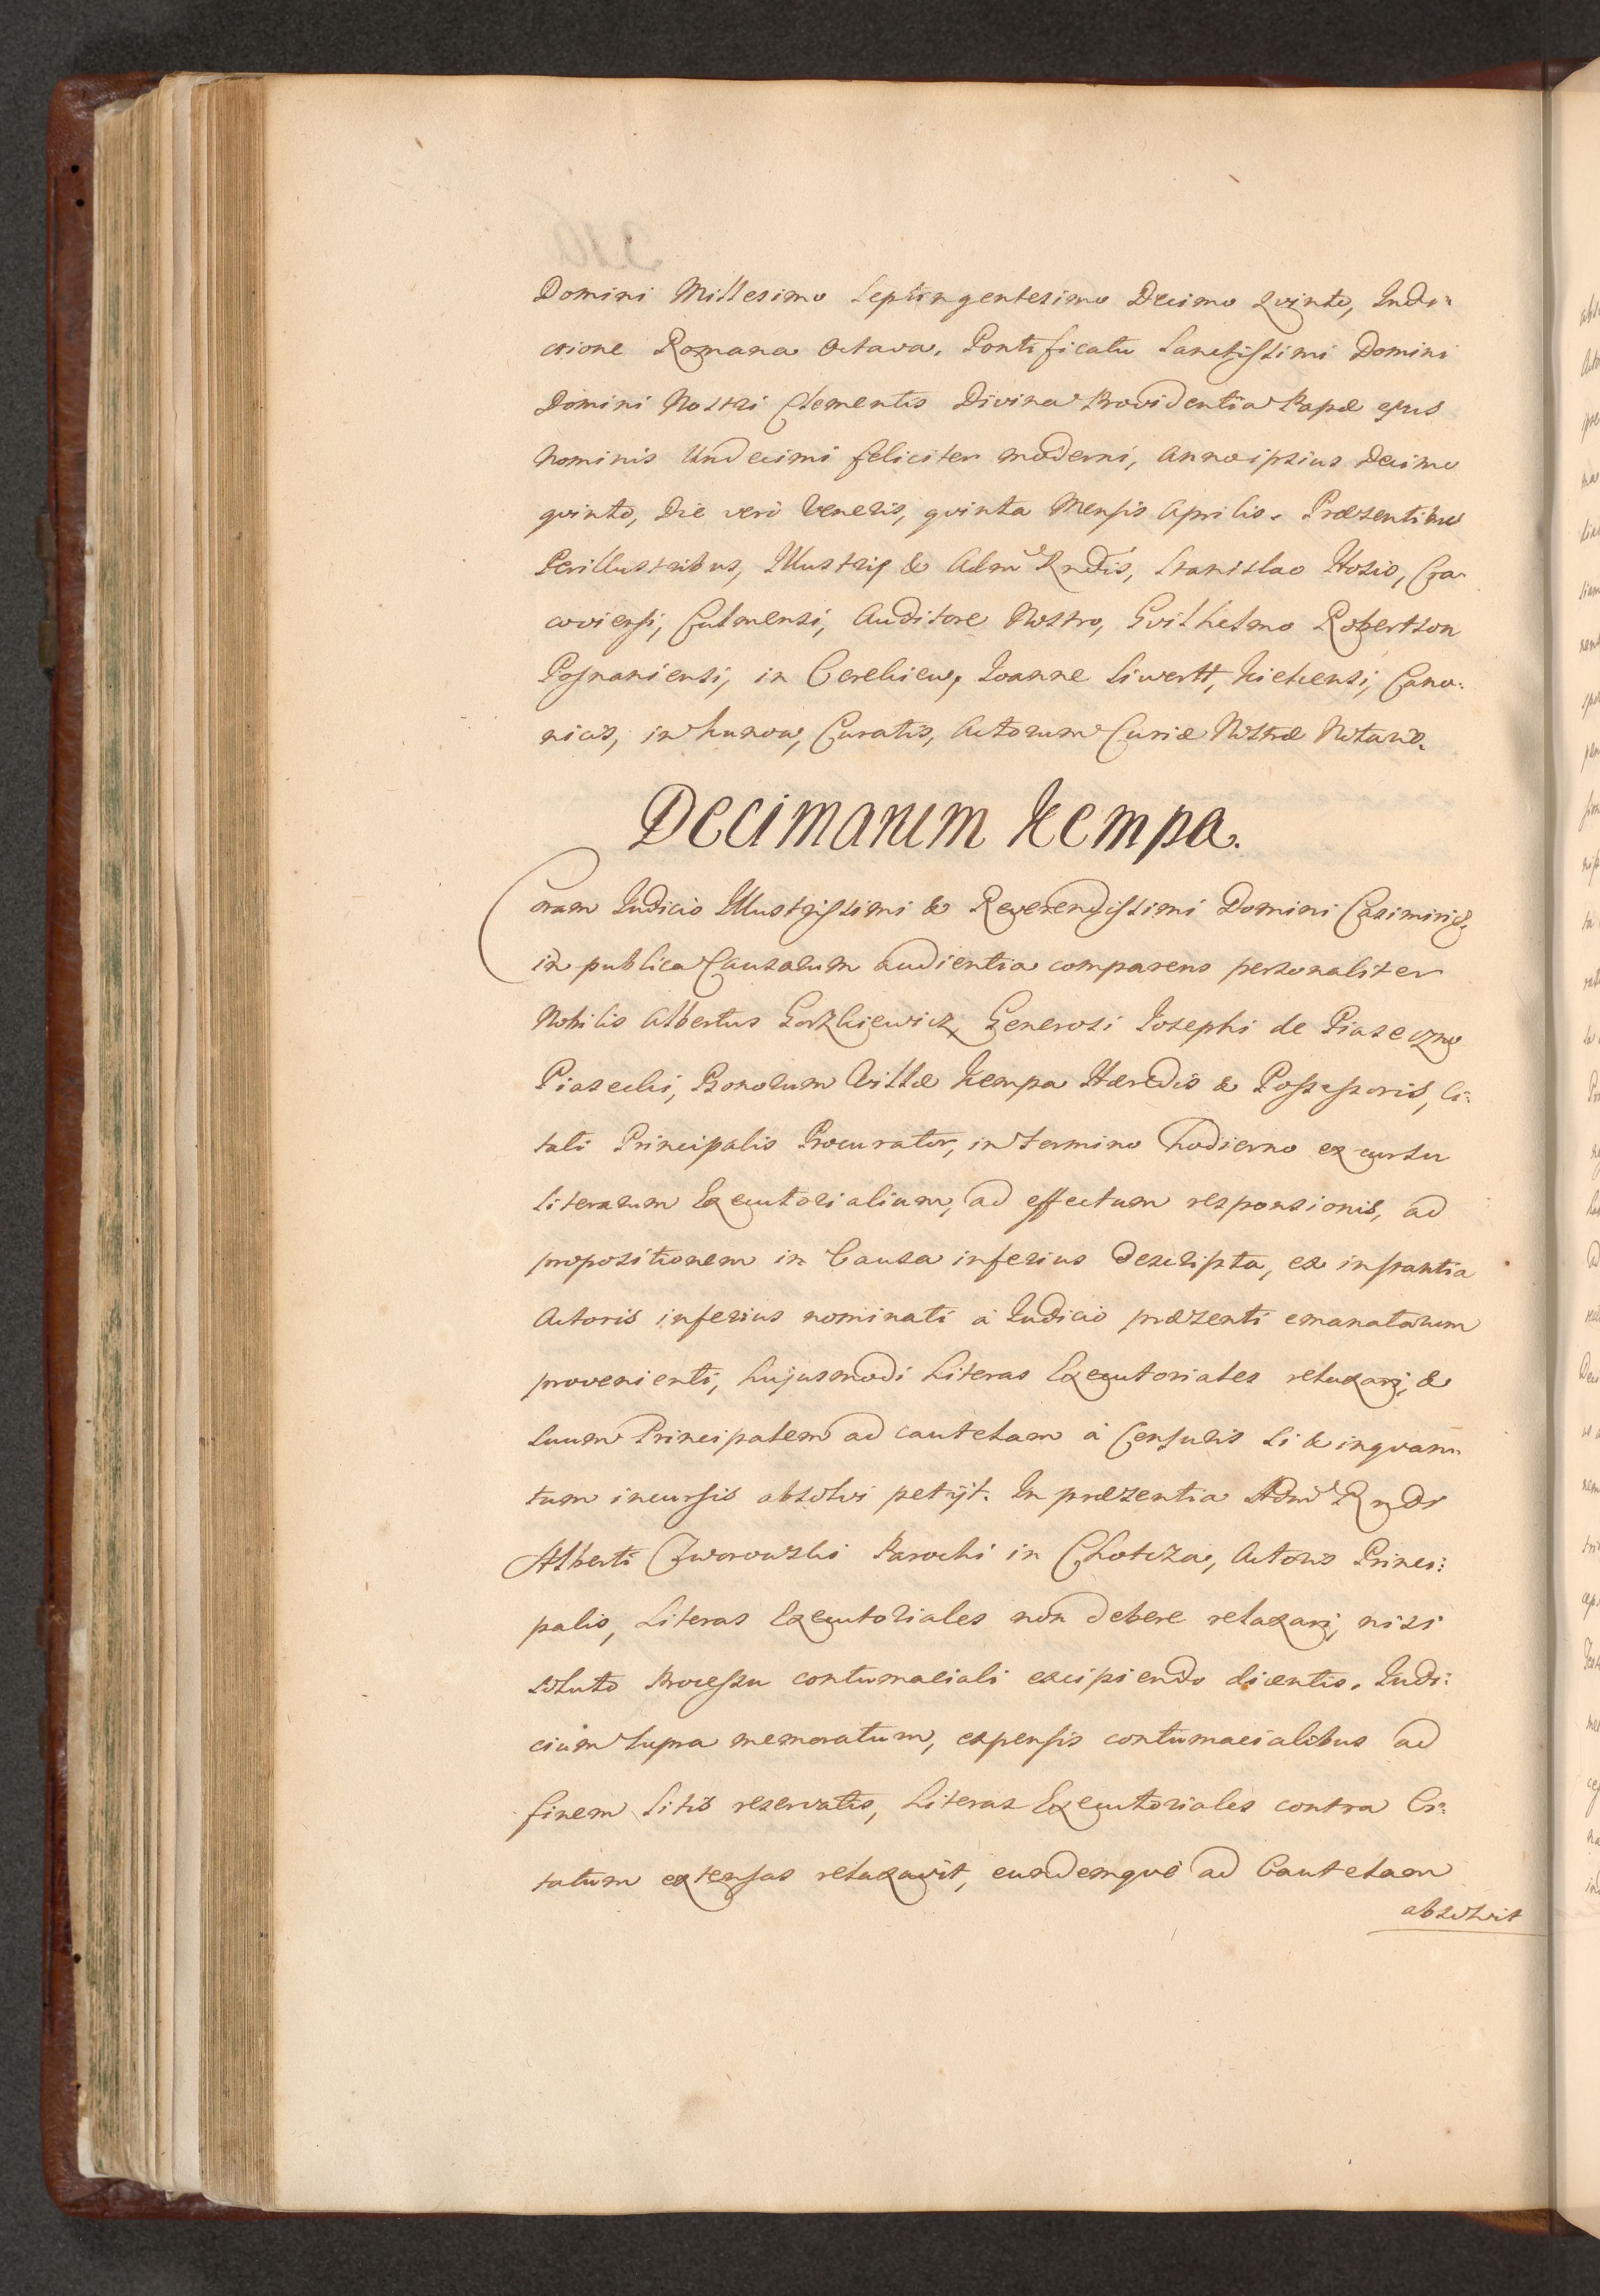 Domini Millesimo Septingentesimo Decimo Qvinto, Indi:
ctione Romana Octava, Pontificatu Sanctissimi Domini
Domini Nostri Clementis Divina Providentia Papæ ejus
Nominis Undecimi feliciter moderni, Anno ipsius Decimo
qvinto, Die verò Veneris, qvinta Mensis Aprilis. Præsentibus
Perillustribus, Illustris & Adm Rndis, Stanislao Hosio, Cra-
coviensi, Culmensi, Auditore Nostro, Gvilhelmo Robertson
Posnaniensi, in Cerekiew, Joanne Siwertt, Kielcensi, Cano:
nicis, in Kunow, Curatis, Actorum Curiæ Nostræ Notario.
Decimarum Kempa.
Coram Judicio Illustrissimi & Reverendissimi Domini Casimiri &
in publica Causarum audientia comparens personaliter
Nobilis Albertus Gorzkiewicz, Generosi Josephi de Piaseczno
Piasecki, Bonorum Villæ Kempa Hæredis & Possessoris, Ci:
tati Principalis Procurator, in termino hodierno ex cursu
Literarum Executorialium, ad effectum responsionis, ad
propositionem in Causa inferius descripta, ex instantia
Actoris inferius nominati à Judicio præsenti emanatarum
provenienti, hujusmodi Literas Executoriales relaxari, &
suum Principalem ad cautelam à Censuris si & inqvan-
tum incursis absolvi petijt. In præsentia Adm Rndi
Alberti Zworowski Parochi in Chotcza, Actoris Princi:
palis, Literas Executoriales non debere relaxari, nisi
soluto Processu contumaciali excipiendo dicentis. Judi:
cium supra memoratum, expensis contumacialibus ad
finem Litis reservatis, Literas Executoriales contra Ci:
tatum extensas relaxavit, eundemqve ad Cautelam
absolvit